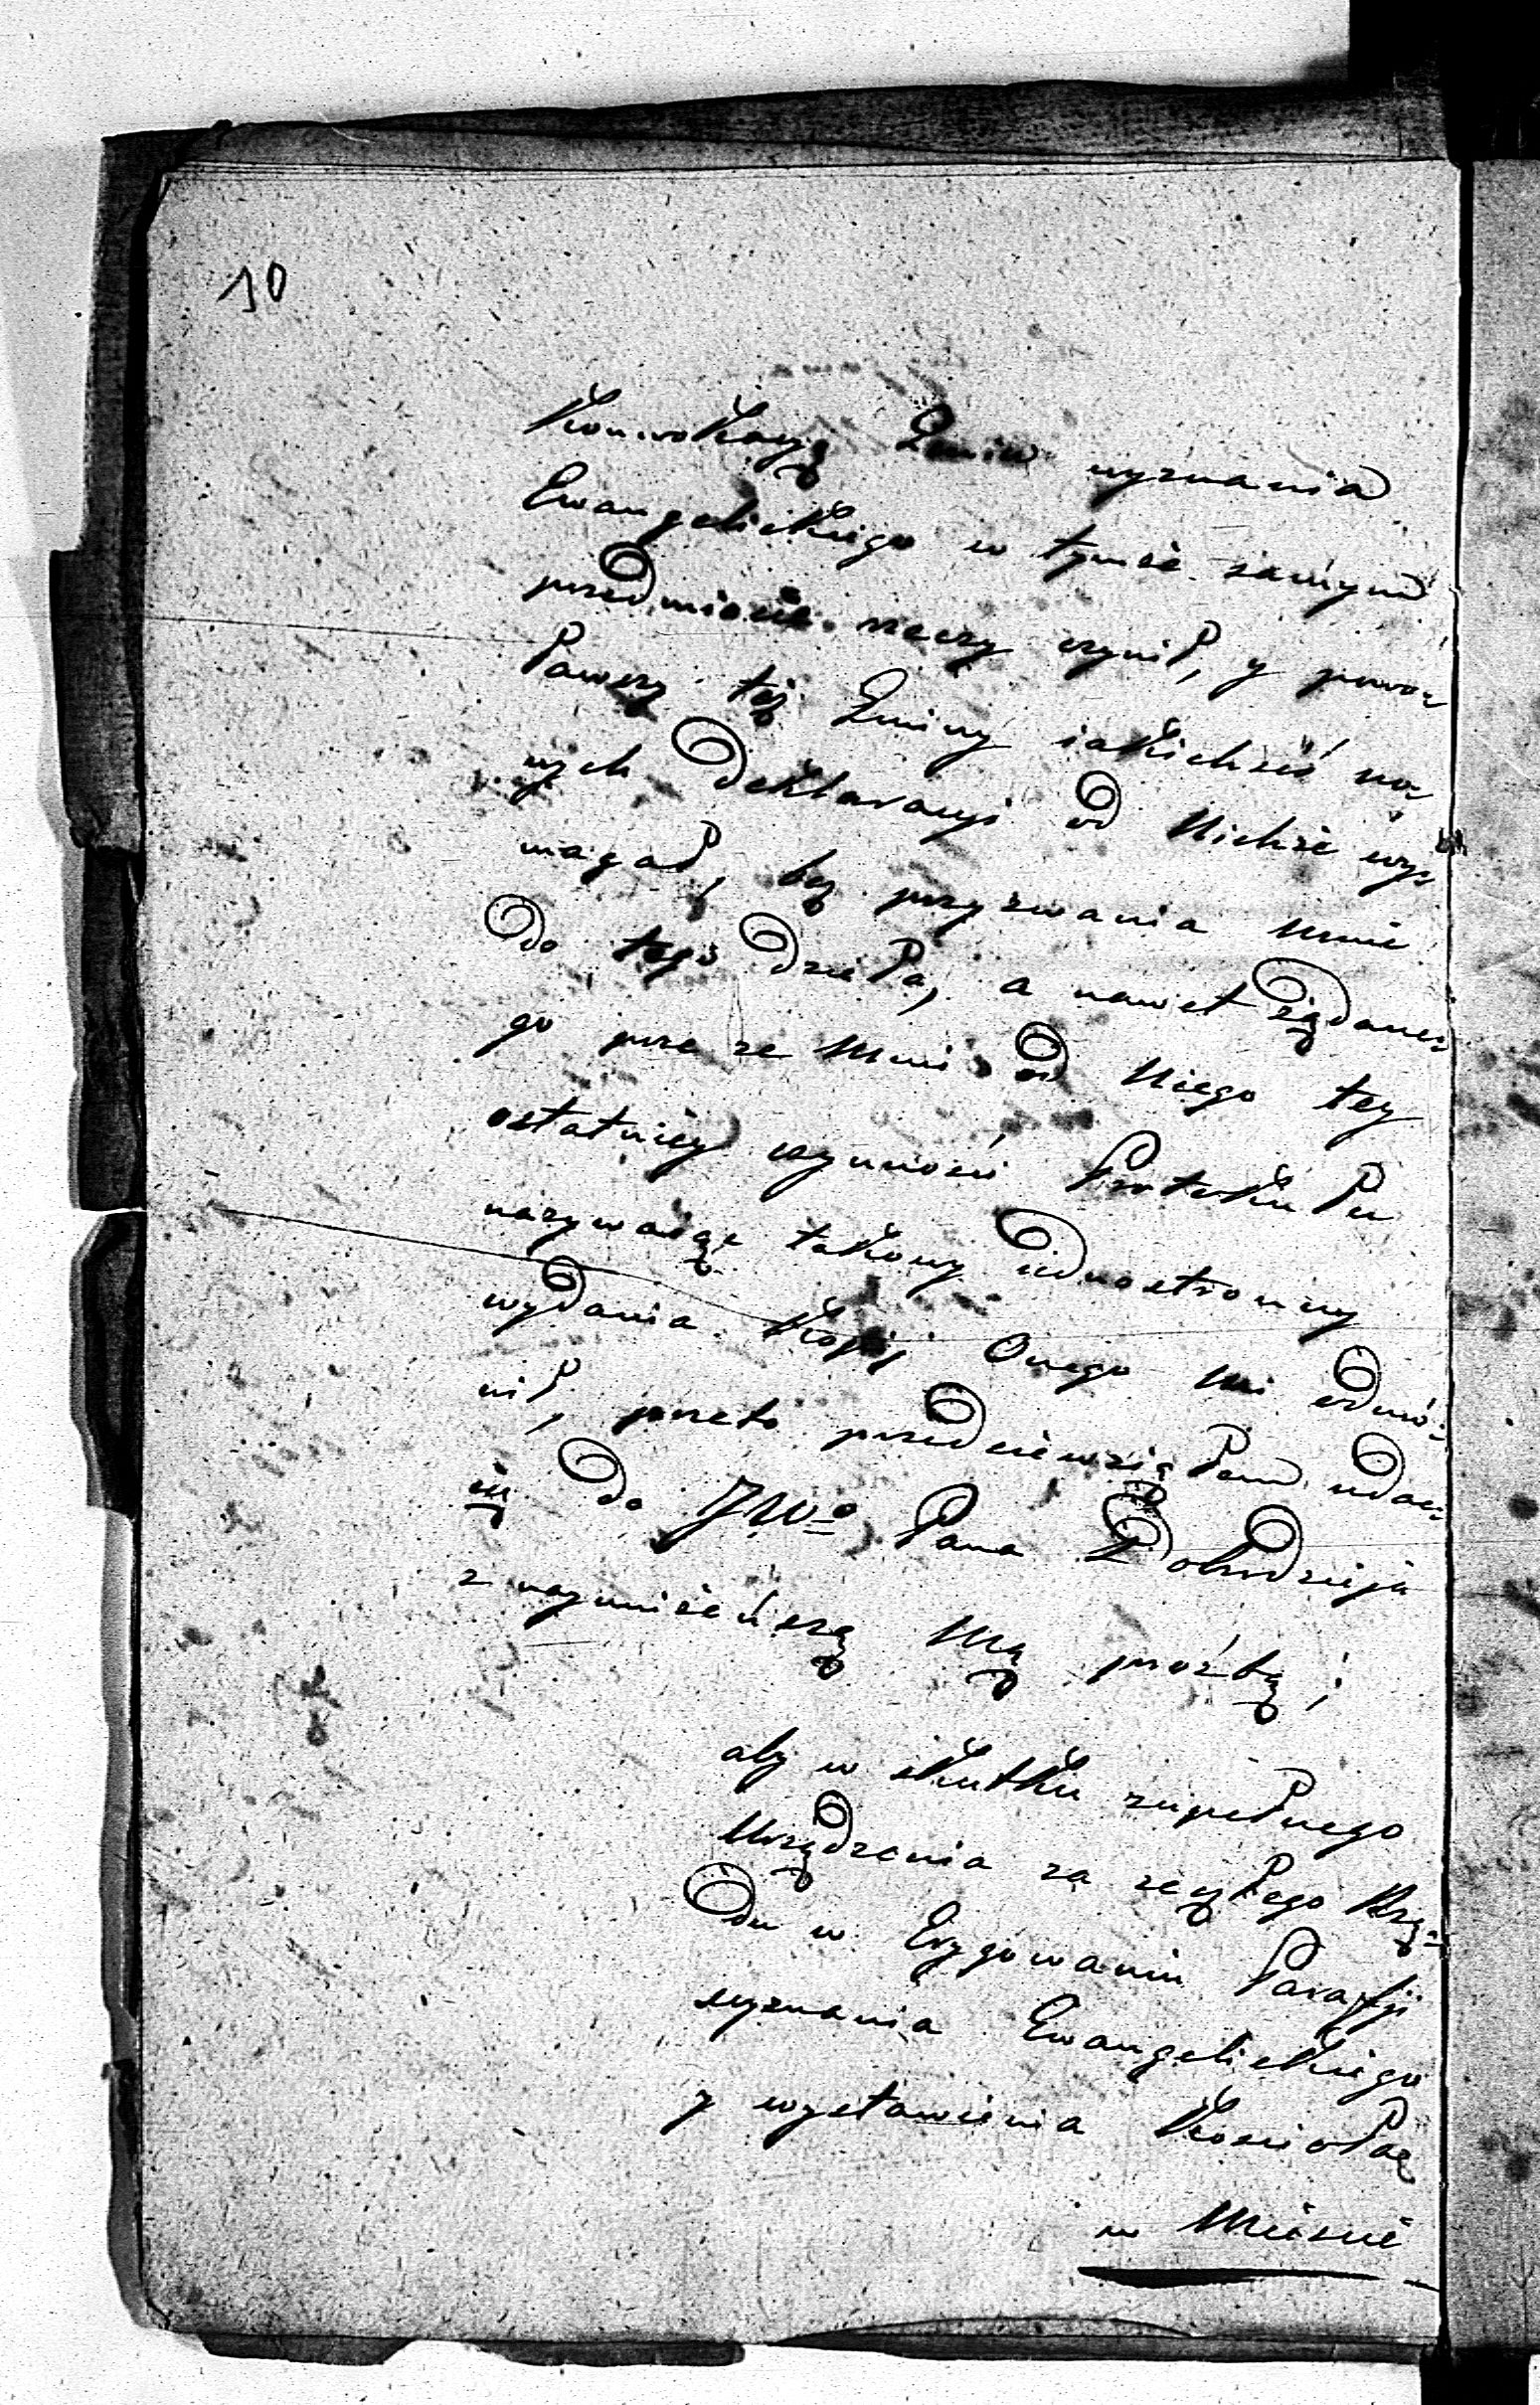 10
Konwokacyą Gmin wyznania
Ewangelickiego w tymże samym
przedmiocie rzeczy czynił, y powo=
ławszy tęż Gminy iakichsiś no=
wych deklaracyi od Nichże wy=
magał, bez przyzwania mnie
do tego dzieła, a nawet żądane=
go prze ze mnie od Niego tey
ostatniey czynności Protokułu
nazywaiąc takowy iednostronny
wydania Kopij Onego mi odmó=
nił, przeto przedsięwziąłem udać
się do JWo Pana Dobrodzieja
z nayuniżeńszą mą prożbą;
aby w skutku zupełnego
Urządzenia za szczęłego Rzą=
du w Erygowaniu Parafji
wyznania Ewangelickiego
y wystawienia Kościoła
w Mieście